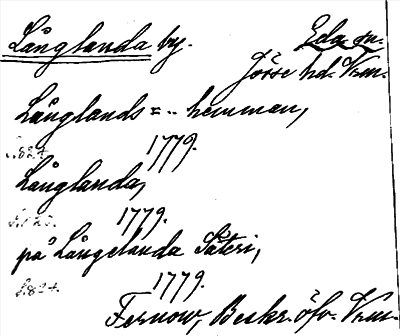 Långlanda by. Eda sn.
Jösse hd. Vrm.
Långlands=.. hemman,
1779.
s.824.
Långlanda,
1779.
på Långelanda Säteri,
1779.
s.824.
Fernow, Beskr. öfv. Vrm.